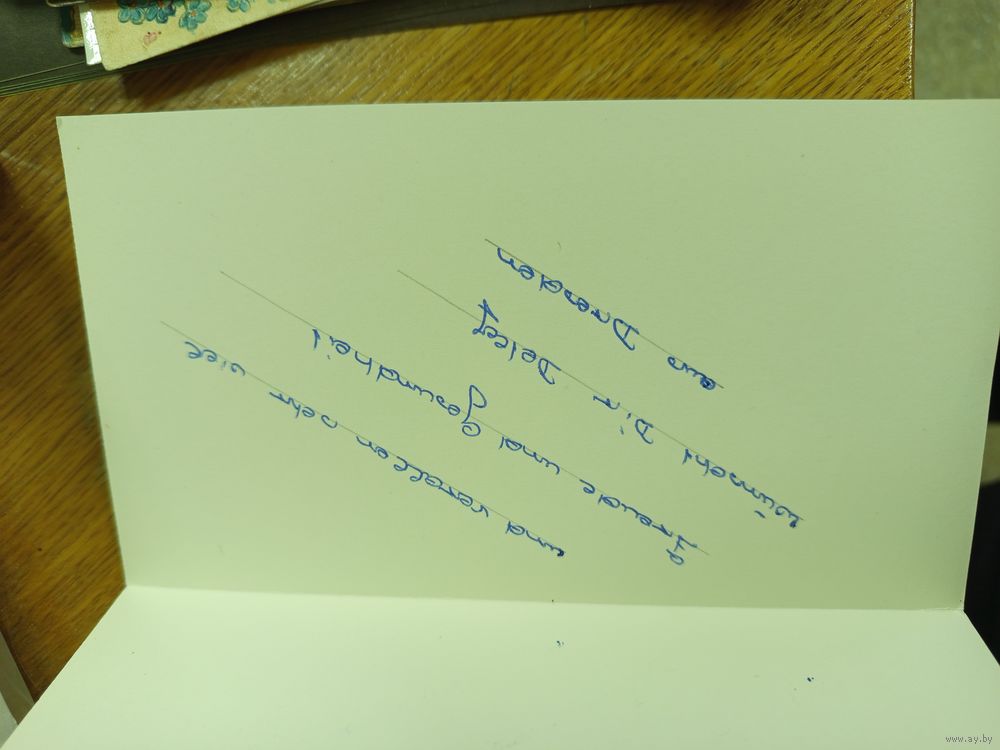 und vor allen sehr viel
Freude und Gesundheit
wünscht Dir Detlef
aus Dresden
www.ay.by